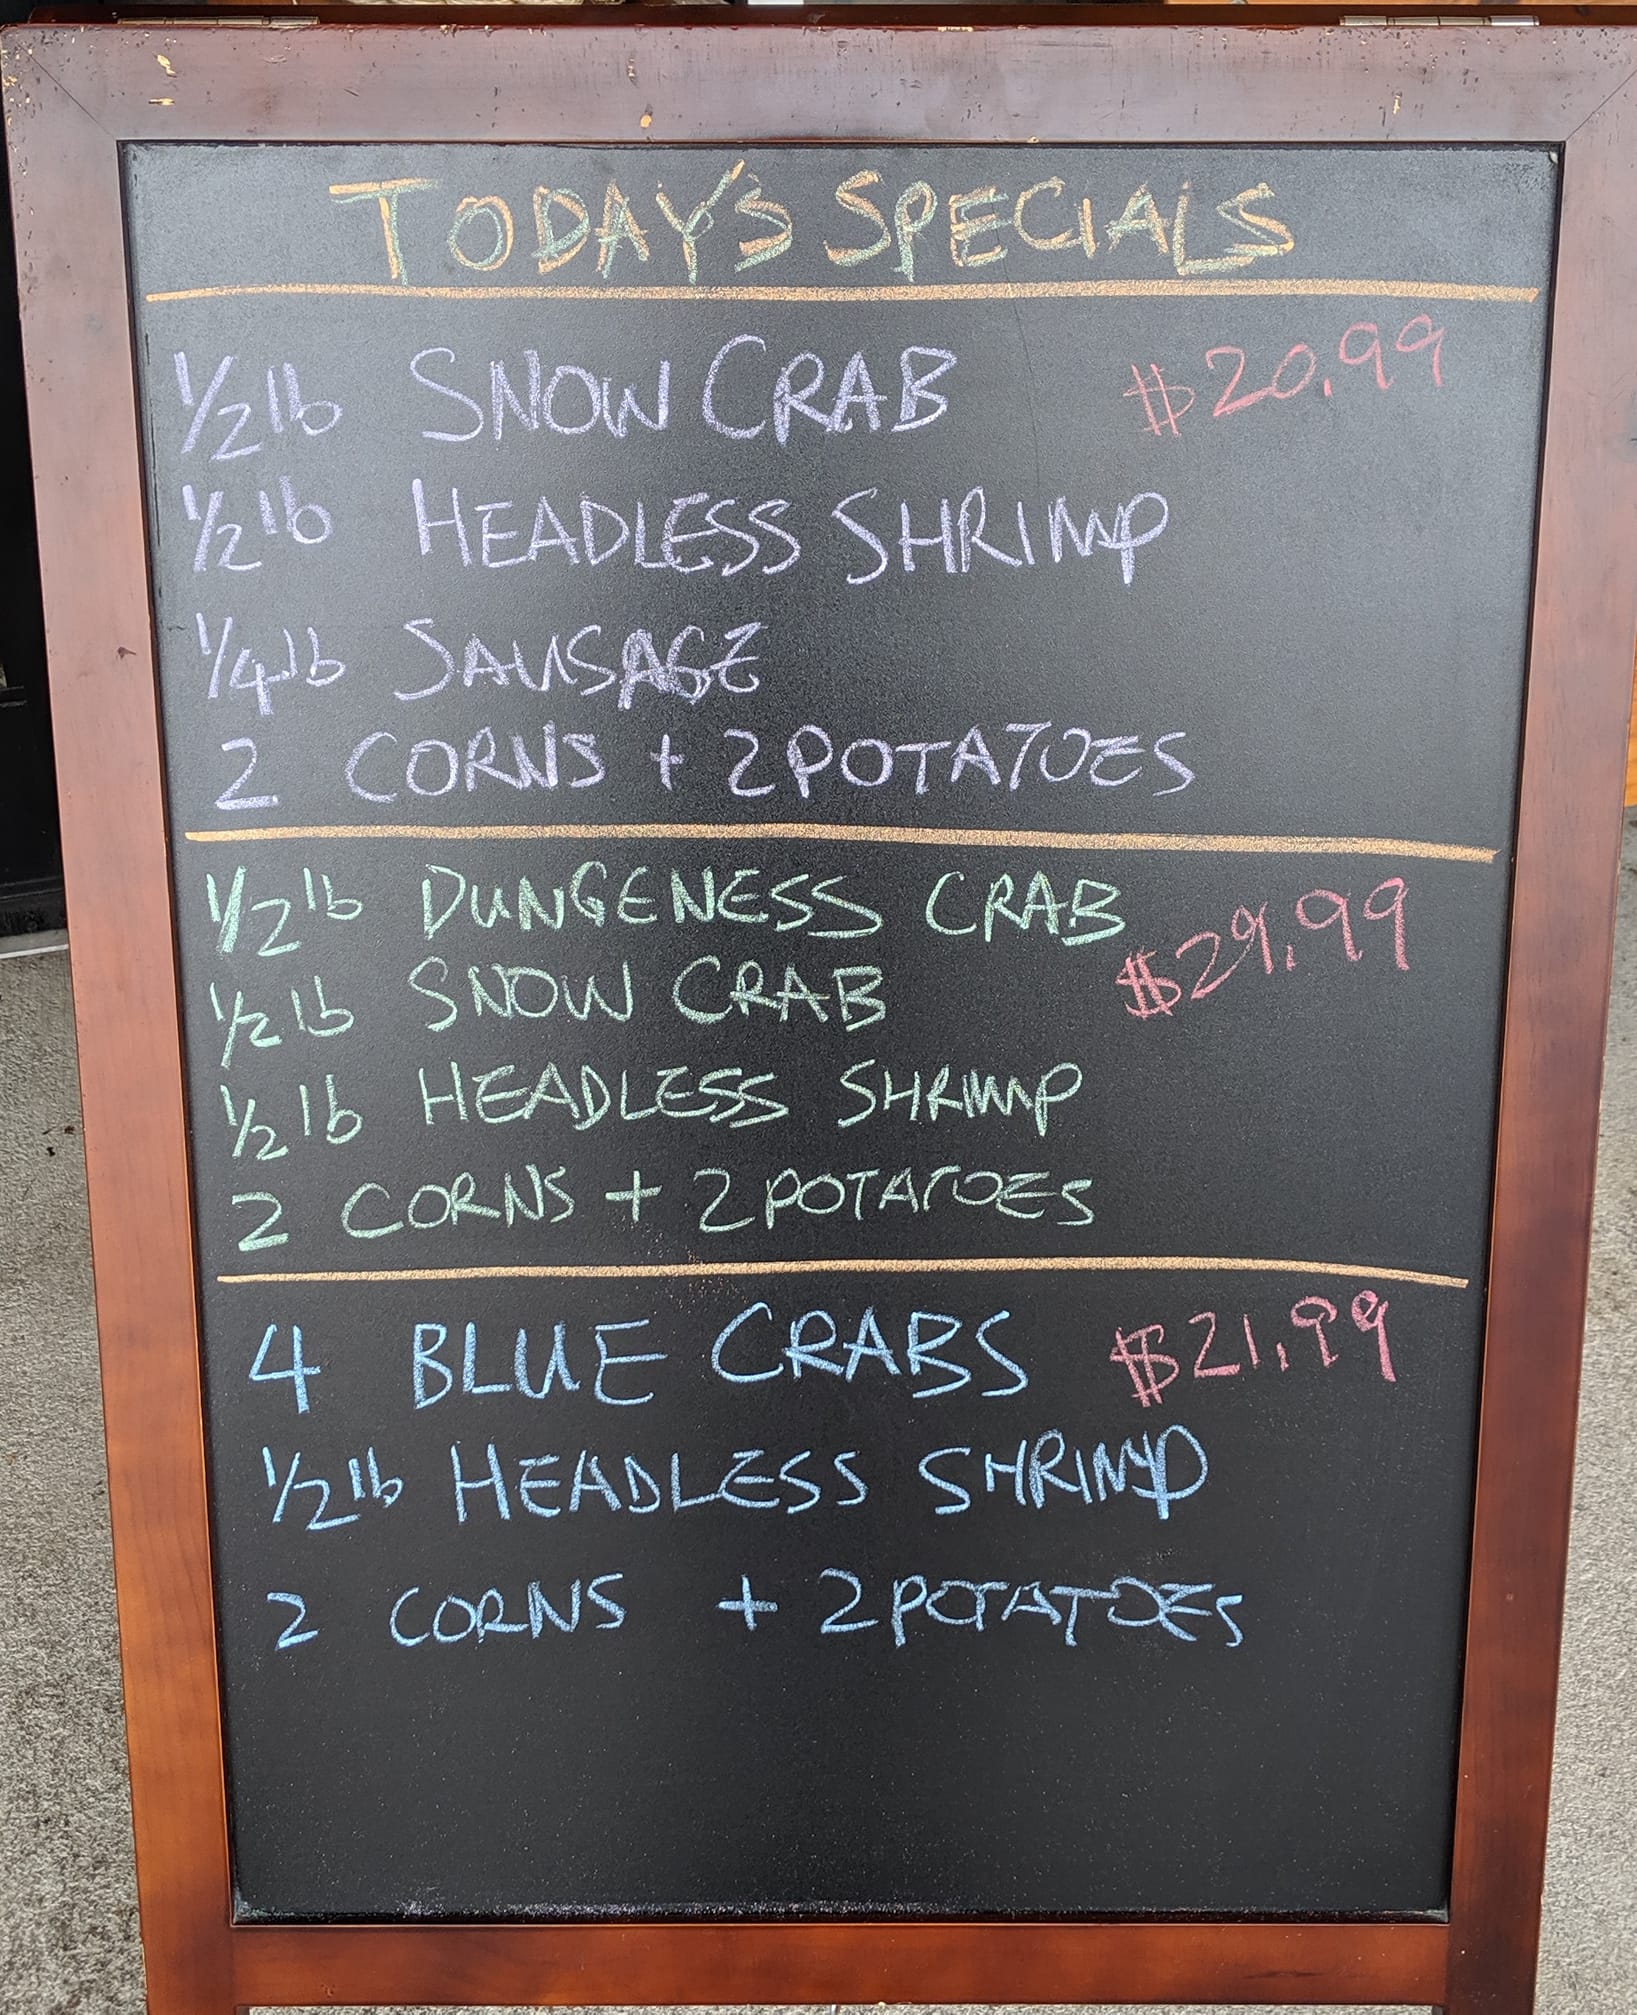 TODAY'S SPECIALS
1/2 lb SNOW CRAB $20.99
1/2 lb HEADLESS SHRIMP
1/4 lb SAUSAGE
2 CORNS + 2 POTATOES
1/2 lb DUNGENESS CRAB
$29.99
1/2 lb SNOW CRAB
1/2 lb HEADLESS SHRIMP
2 CORNS + 2 POTATOES
4 BLUE CRABS $21.99
1/2 lb HEADLESS SHRIMP
2 CORNS + 2 POTATOES